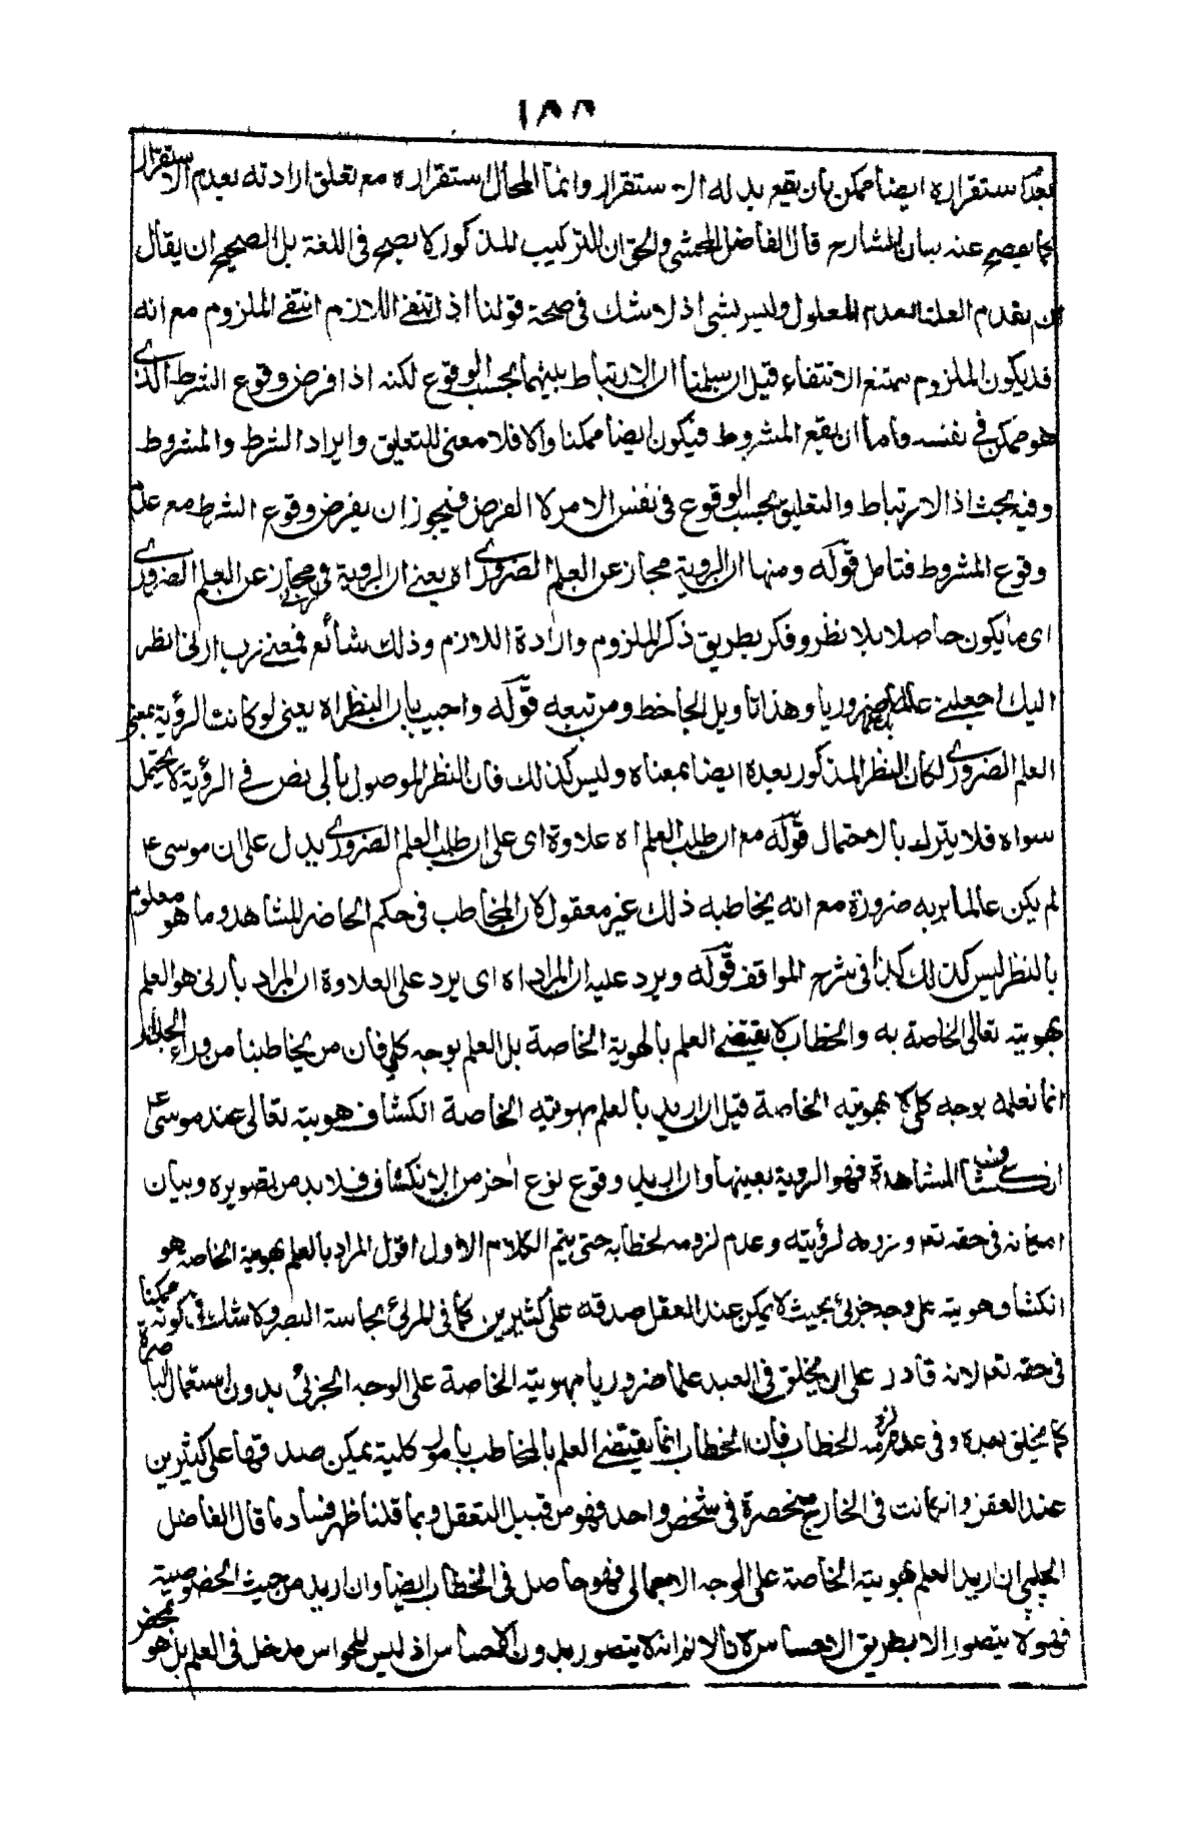 ١٨٨
بعد استقراره ايضا ممكن بان يقع بدله الاستقرار وانما المحال استقراره مع تعلق ارادته بعدم الاستقرار
كما يفصح عنه بيان الشارح قال الفاضل المحشي والحق ان التركيب المذكور لا يصح في اللغة بل الصحيح ان يقال
ان يقدم العلة العدم المعلول وليس بشئ اذ لا شك في صحة قولنا اذا انتفى اللازم انتفى الملزوم مع انه
قد يكون الملزوم ممتنع الانتفاء قيل ان سلمنا ان الارتباط بينهما بحسب الوقوع لكنه اذا فرض وقوع الشرط الذى
هو ممكن في نفسه فاما ان يقع المشروط فيكون ايضا ممكنا والا فلا معنى للتعليق وايراد الشرط والمشروط
وفيه بحث اذ الارتباط والتعليق بحسب الوقوع في نفس الامر لا الفرض فيجوز ان يفرض وقوع الشرط مع عدم
وقوع المشروط فتامل قوله ومنها ان الروية مجاز عن العلم الضرورى اه يعنى ان الروية في مجاز عن العلم الضرورى
اى ما يكون حاصلا بلا نظر وفكر بطريق ذكر الملزوم وارادة اللازم وذلك شائع فمعنى رب ارنى انظر
اليك اجعلنى عالما ضروريا وهذا تاويل الجاحظ ومن تبعه قوله واجيب بان النظر اه يعنى لو كانت الرؤية بمعنى
العلم الضرورى لكان النظر المذكور بعده ايضا بمعناه وليس كذلك فان النظر الموصول بالى نص في الرؤية لا يحتمل
سواه فلا يترك بالاحتمال قوله مع ان طلب العلم اه علاوة اى على ان طلب العلم الضرورى يدل على ان موسى ع
لم يكن عالما بربه ضرورة مع انه يخاطبه ذلك غير معقول لان المخاطب في حكم الحاضر المشاهد وما هو معلوم
بالنظر ليس كذلك كذا في شرح المواقف قوله ويرد عليه ان المراد اه اى يرد على العلاوة ان المراد بارنى هو العلم
بهويته تعالى الخاصة به والخطاب لا يقتضى العلم بالهوية الخاصة بل العلم بوجه كلي فان من يخاطبنا من وراء الجدار
انما نعلمه بوجه كلي لا بهويته الخاصة قيل ان اريد بالعلم بهويته الخاصة انكشاف هويته تعالى عند موسى ع
المشاهدة فهو الروية بعينها وان اريد وقوع نوع اخر من الانكشاف فلا بد من تصويره وبيان
امكانه في حقه تعا ولزومه لرؤيته وعدم لزومه لخطابه حتى يتم الكلام الاول اقول المراد بالعلم بهويته الخاصه هو
انكشاف هويته على وجه جزئى بحيث لا يمكن عند العقل صدقه على كثيرين كما في المرئى بحاسة البصر ولا شك في كونه ممكنا
في حقه تعا لانه قادر على ان يخلق في العبد علما ضروريا بهويته الخاصة على الوجه الجزئى بدون استعمال الباصرة
كما يخلق بعده وفى عدم لزومه الخطاب فان الخطاب انما يقتضى العلم بالمخاطب بامور كلية يمكن صدقها على كثيرين
عند العقل وان كانت في الخارج منحصرة في شخص واحد فهو من قبيل التعقل وبما قلنا ظهر فساد ما قال الفاضل
الچلپى ان اريد العلم بهويته الخاصة على الوجه الاجمالى فهو حاصل في الخطاب ايضا وان اريد من حيث الخصوصية
فهو لا يتصور الا بطريق الاحساس لانا لانم انه لا يتصور بدون الاحساس اذ ليس للحواس مدخل في العلم بل هو بمحض